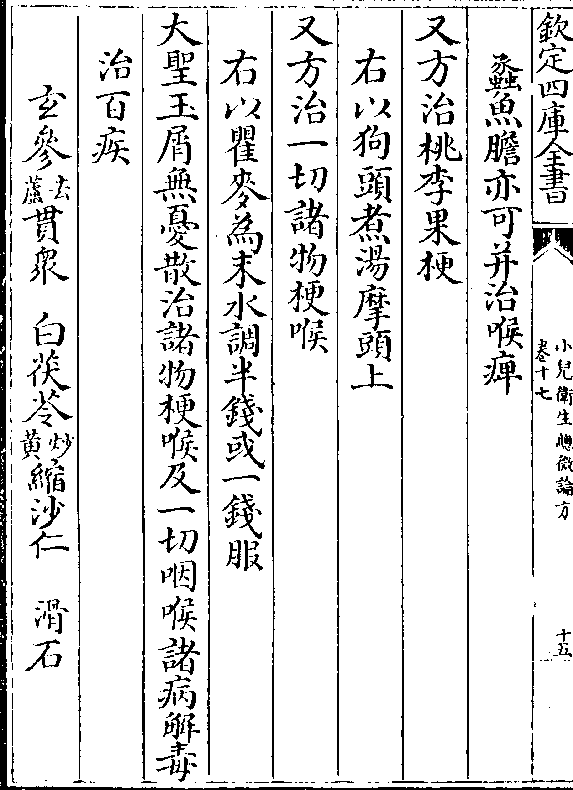 欽定四庫全書
小兒衛生總微論方
卷十七
十五
蠡魚膽亦可并治喉痺
又方治桃李果梗
右以狗頭煮湯摩頭上
又方治一切諸物梗喉
右以瞿麥為末水調半錢或一錢服
大聖玉屑無憂散治諸物梗喉及一切咽喉諸病解毒
治百疾
玄參去蘆貫衆　白茯苓炒黄縮沙仁　滑石